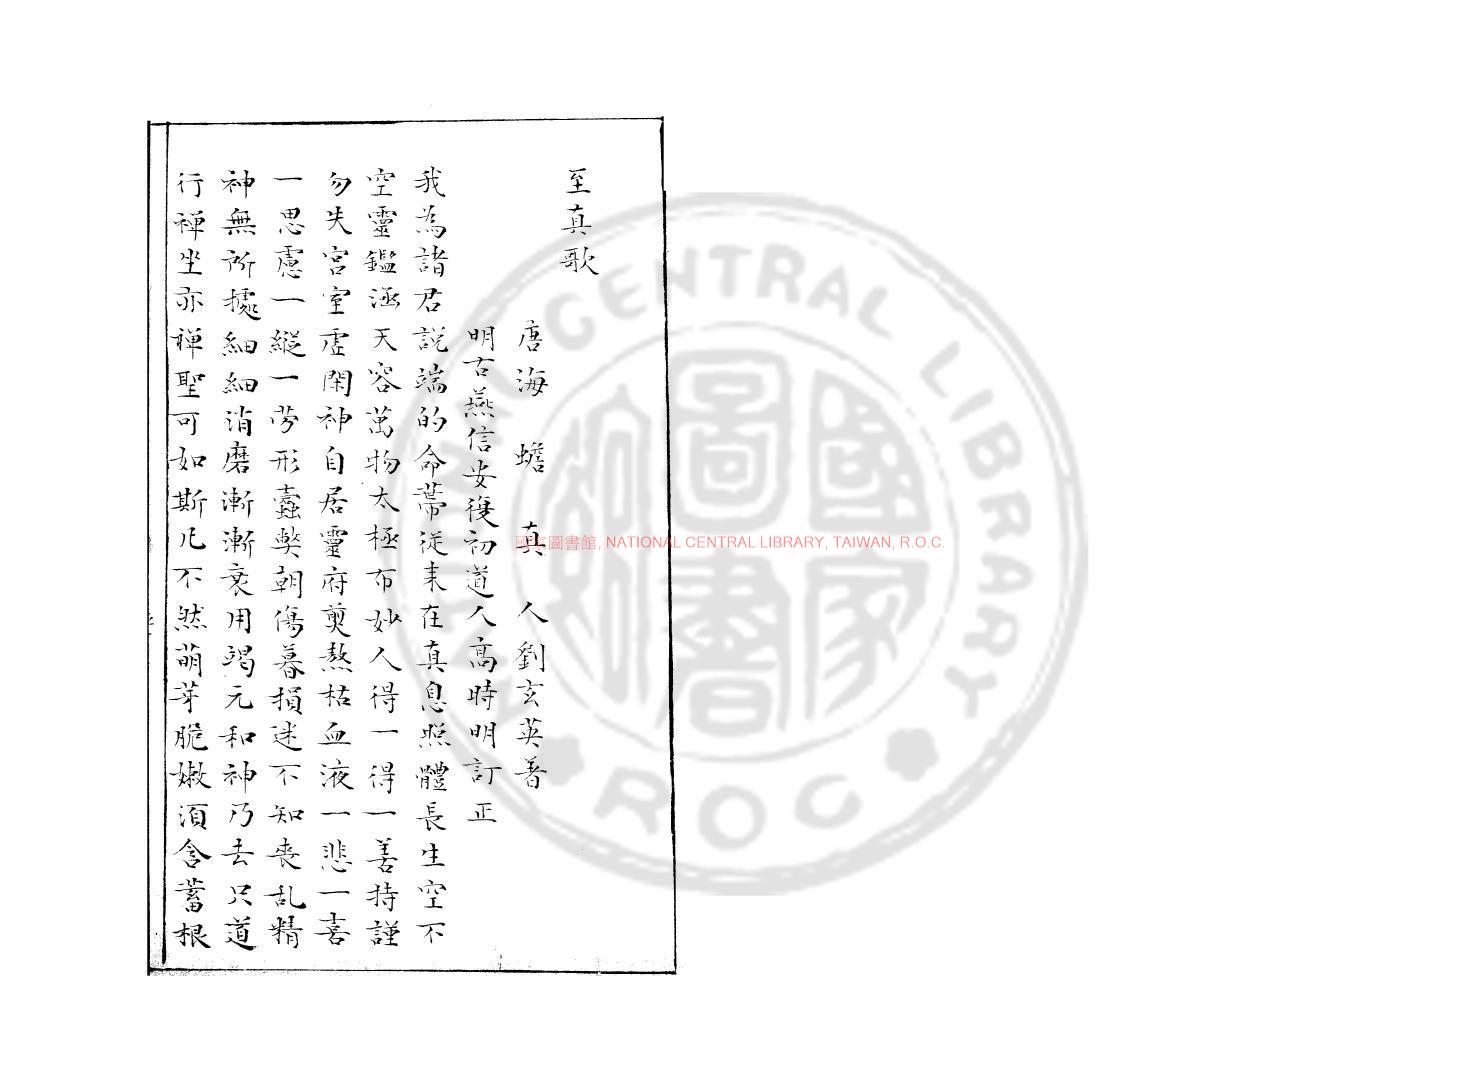 至真歌
唐海蟾真人劉玄英著
明古燕信安復初道人高時明訂正
我為諸君説端的命蒂従来在真息照體長生空不
空靈鑑涵天容萬物太極布妙人得一得一善持謹
勿失宮室虚閑神自居靈府煎熬枯血液一悲一喜
一思慮一縱一勞形蠹弊朝傷暮損迷不知喪乱精
神無所據細細消磨漸漸衰用竭元和神乃去只道
行禅坐亦禅聖可如斯凡不然萌芽脆嫩須含蓄根
國家圖書館, NATIONAL CENTRAL LIBRARY, TAIWAN, R.O.C.
NATIONAL CENTRAL LIBRARY
ROC
國家圖書館